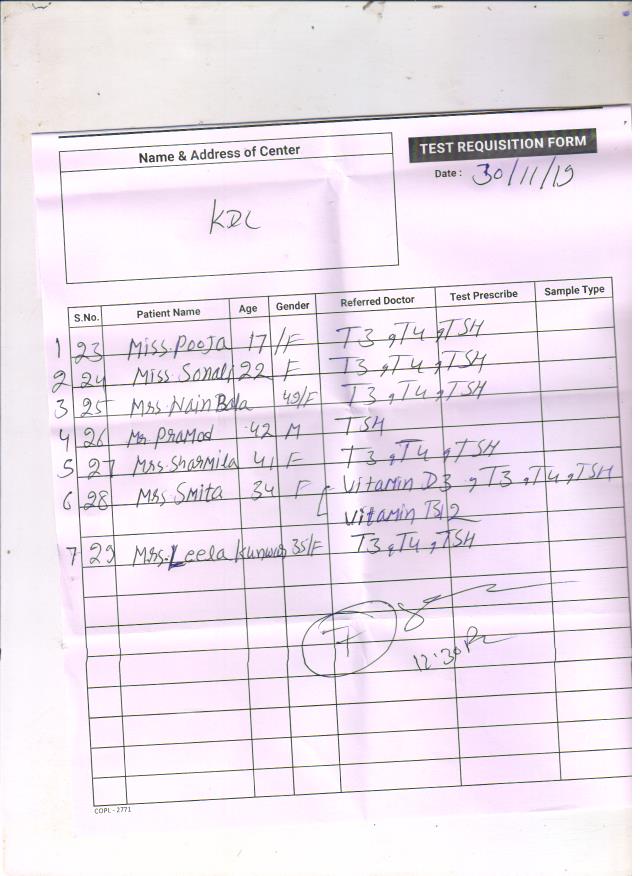 Name & Address of Center
TEST REQUISITION FORM
Date : 30/11/19
KDC
S.No. Patient Name Age Gender Referred Doctor Test Prescribe Sample Type
1 23 Miss. Pooja 17/F T3, T4, TSH
2 24 Miss Sonali 22 F T3, T4, TSH
3 25 Mrs. Nain Bala 49/F T3, T4, TSH
4 26 Mr. Pramod 42 M TSH
5 27 Mrs. Sharmila 41 F T3, T4, TSH
6 28 Mrs Smita 34 F Vitamin D3, T3, T4, TSH
Vitamin B12
7 29 Mrs. Leela Kunwar 35/F T3, T4, TSH
7
12:30 Pm
COPL - 2771